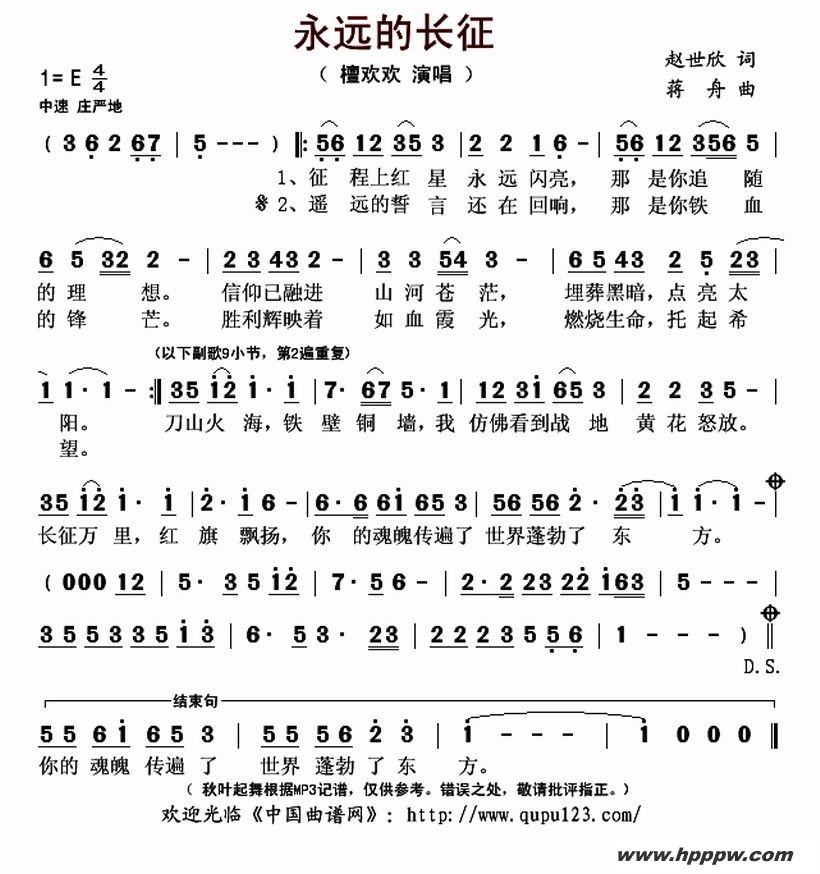 永远的长征
1= E 4/4
（ 檀欢欢 演唱 ）
赵世欣 词
中速 庄严地
蒋 舟 曲
( 3 6 2 67 | 5 - - - ) ‖: 56 12 35 3 | 2 2 1 6 - | 56 12 356 5 |
1、征 程上红 星 永 远 闪亮， 那 是你追 随
𝄋 2、遥 远的誓 言 还 在 回响， 那 是你铁 血
6 5 32 2 - | 2 3 43 2 - | 3 3 54 3 - | 6 5 43 2 5 23 |
的 理 想。 信仰已融进 山 河 苍 茫， 埋葬黑暗，点 亮 太
的 锋 芒。 胜利辉映着 如 血 霞 光， 燃烧生命，托 起 希
（以下副歌9小节，第2遍重复）
1 1· 1 - :‖ 35 i2 i· i | 7· 67 5· 1 | 12 31 65 3 | 2 2 3 5 - |
阳。 刀山火 海，铁 壁 铜 墙，我 仿佛看到战 地 黄 花 怒放。
望。
35 i2 i· i | 2· i 6 - | 6·6 6i 65 3 | 56 56 2· 23 | i i - - |
长征万 里，红 旗 飘扬， 你 的魂魄传遍了 世界蓬勃了 东 方。
( 000 12 | 5· 3 5 i2 | 7· 5 6 - | 2·2 23 22 i63 | 5 - - - |
3 5 5 3 3 5 i 3 | 6· 5 3· 23 | 2 2 2 3 5 5 6 | 1 - - - ) ‖
D.S.
结束句
5 5 6 i 6 5 3 | 5 5 5 6 2 3 | i - - - | i 0 0 0 ‖
你的 魂魄 传遍 了 世界 蓬勃 了 东 方。
（ 秋叶起舞根据MP3记谱，仅供参考。错误之处，敬请批评指正。）
欢迎光临《中国曲谱网》：http://www.qupu123.com/
www.hpppw.com